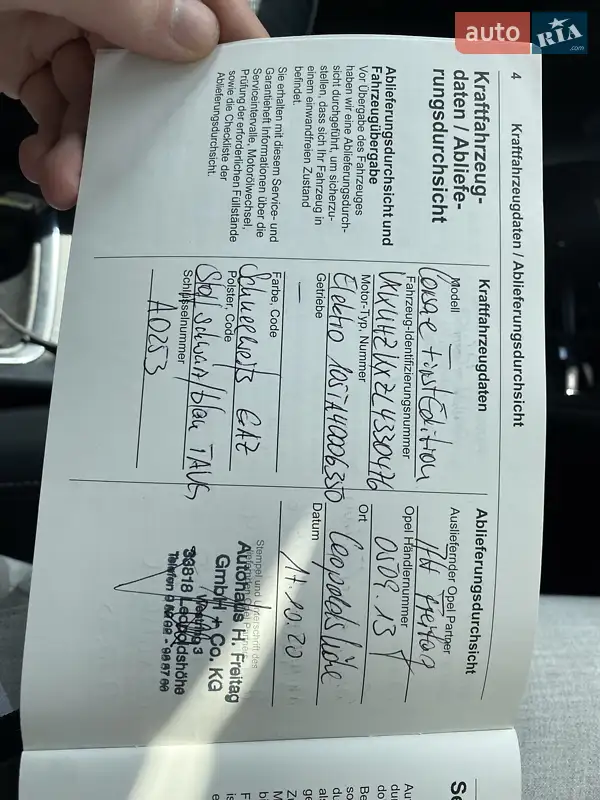 auto RIA.com
4
Kraftfahrzeugdaten / Ablieferungsdurchsicht
Kraftfahrzeug-
daten / Abliefe-
rungsdurchsicht
Ablieferungsdurchsicht und
Fahrzeugübergabe
Vor Übergabe des Fahrzeuges
haben wir eine Ablieferungsdurch-
sicht durchgeführt, um sicherzu-
stellen, dass sich Ihr Fahrzeug in
einem einwandfreien Zustand
befindet.
Sie erhalten mit diesem Service- und
Garantieheft Informationen über die
Serviceintervalle, Motorölwechsel,
Prüfung der erforderlichen Füllstände
sowie die Checkliste der
Ablieferungsdurchsicht.
Kraftfahrzeugdaten
Modell
Corsa-e First Edition
Fahrzeug-Identifizierungsnummer
Motor-Typ, Nummer
Elektro
Getriebe
—
Farbe, Code
Schneeweiß
Polster, Code
Stof schwarz/blau
Schlüsselnummer
A0253
Ablieferungsdurchsicht
Ausliefernder Opel Partner
AH Freitag
Opel Händlernummer
Ort
Leopoldshöhe
Datum
17.10.20
Stempel und Unterschrift des
Autohaus H. Freitag
GmbH + Co. KG
33818 Leopoldshöhe